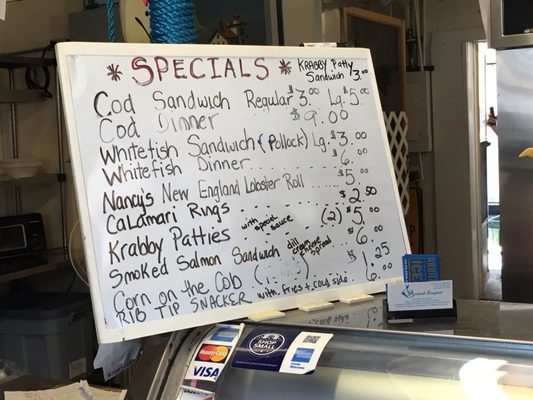 * SPECIALS *
KRABBY Patty
Sandwich $3.00
Cod Sandwich Regular $3.00 Lg. $5.00
Cod Dinner $9.00
Whitefish Sandwich (Pollock) Lg. $3.00
Whitefish Dinner ... $6.00
Nancy's New England Lobster Roll .... $5.00
CaLamari Rings ... $2.50
Krabby Patties with special sauce (2) $5.00
Smoked Salmon Sandwich dill cream cheese spread $6.00
Corn on the Cob (...) 1.25
RIB TIP SNACKER with fries + cold side 6.00
MasterCard
VISA
VISA
SHOP
SMALL